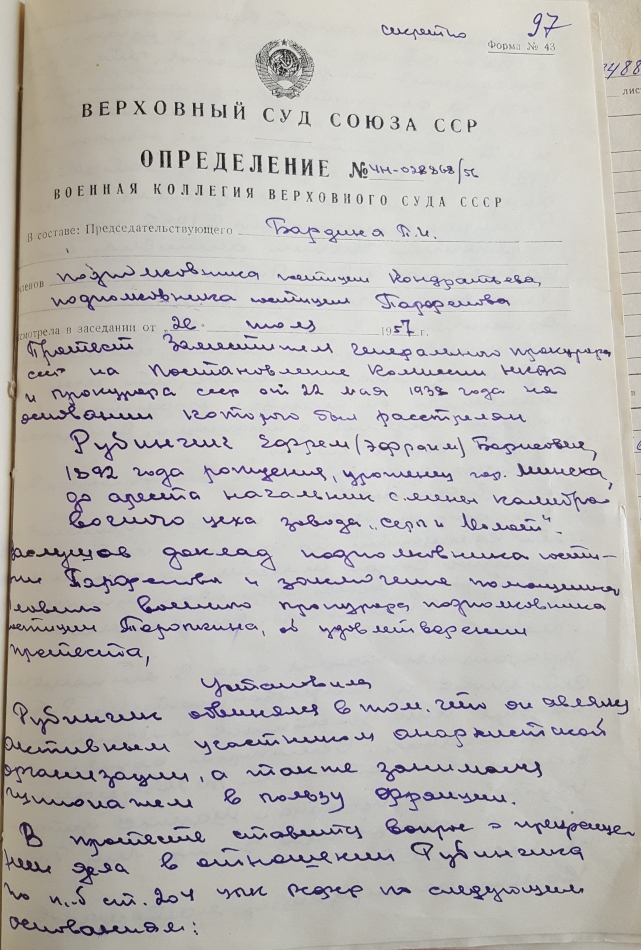 секретно
97
Форма № 43
488
лис
ВЕРХОВНЫЙ СУД СОЮЗА ССР
ОПРЕДЕЛЕНИЕ № 4Н-028868/56
ВОЕННАЯ КОЛЛЕГИЯ ВЕРХОВНОГО СУДА СССР
В составе: Председательствующего Бардина Г.И.
членов подполковника юстиции Кондратьева,
подполковника юстиции Парфенова
смотрела в заседании от „26" июля 1957 г.
Протест Заместителя Генерального прокурора
ссср на Постановление Комиссии НКВД
и прокурора ссср от 22 мая 1938 года на
основании которого был расстрелян
Рубинчик Ефрем (Эфроим) Борисович,
1892 года рождения, уроженец гор. Минска,
до ареста начальник смены калибро-
вочного цеха завода „Серп и Молот".
Заслушав доклад подполковника юсти-
ции Парфенова и заключение помощника
Главного военного прокурора подполковника
юстиции Торопкина, об удовлетворении
протеста,
Установила
Рубинчик обвинялся в том, что он являлся
активным участником анархистской
организации, а также занимался
шпионажем в пользу Франции.
В протесте ставится вопрос о прекраще-
нии дела в отношении Рубинчика
по п. б ст. 204 УПК РСФСР по следующим
основаниям: